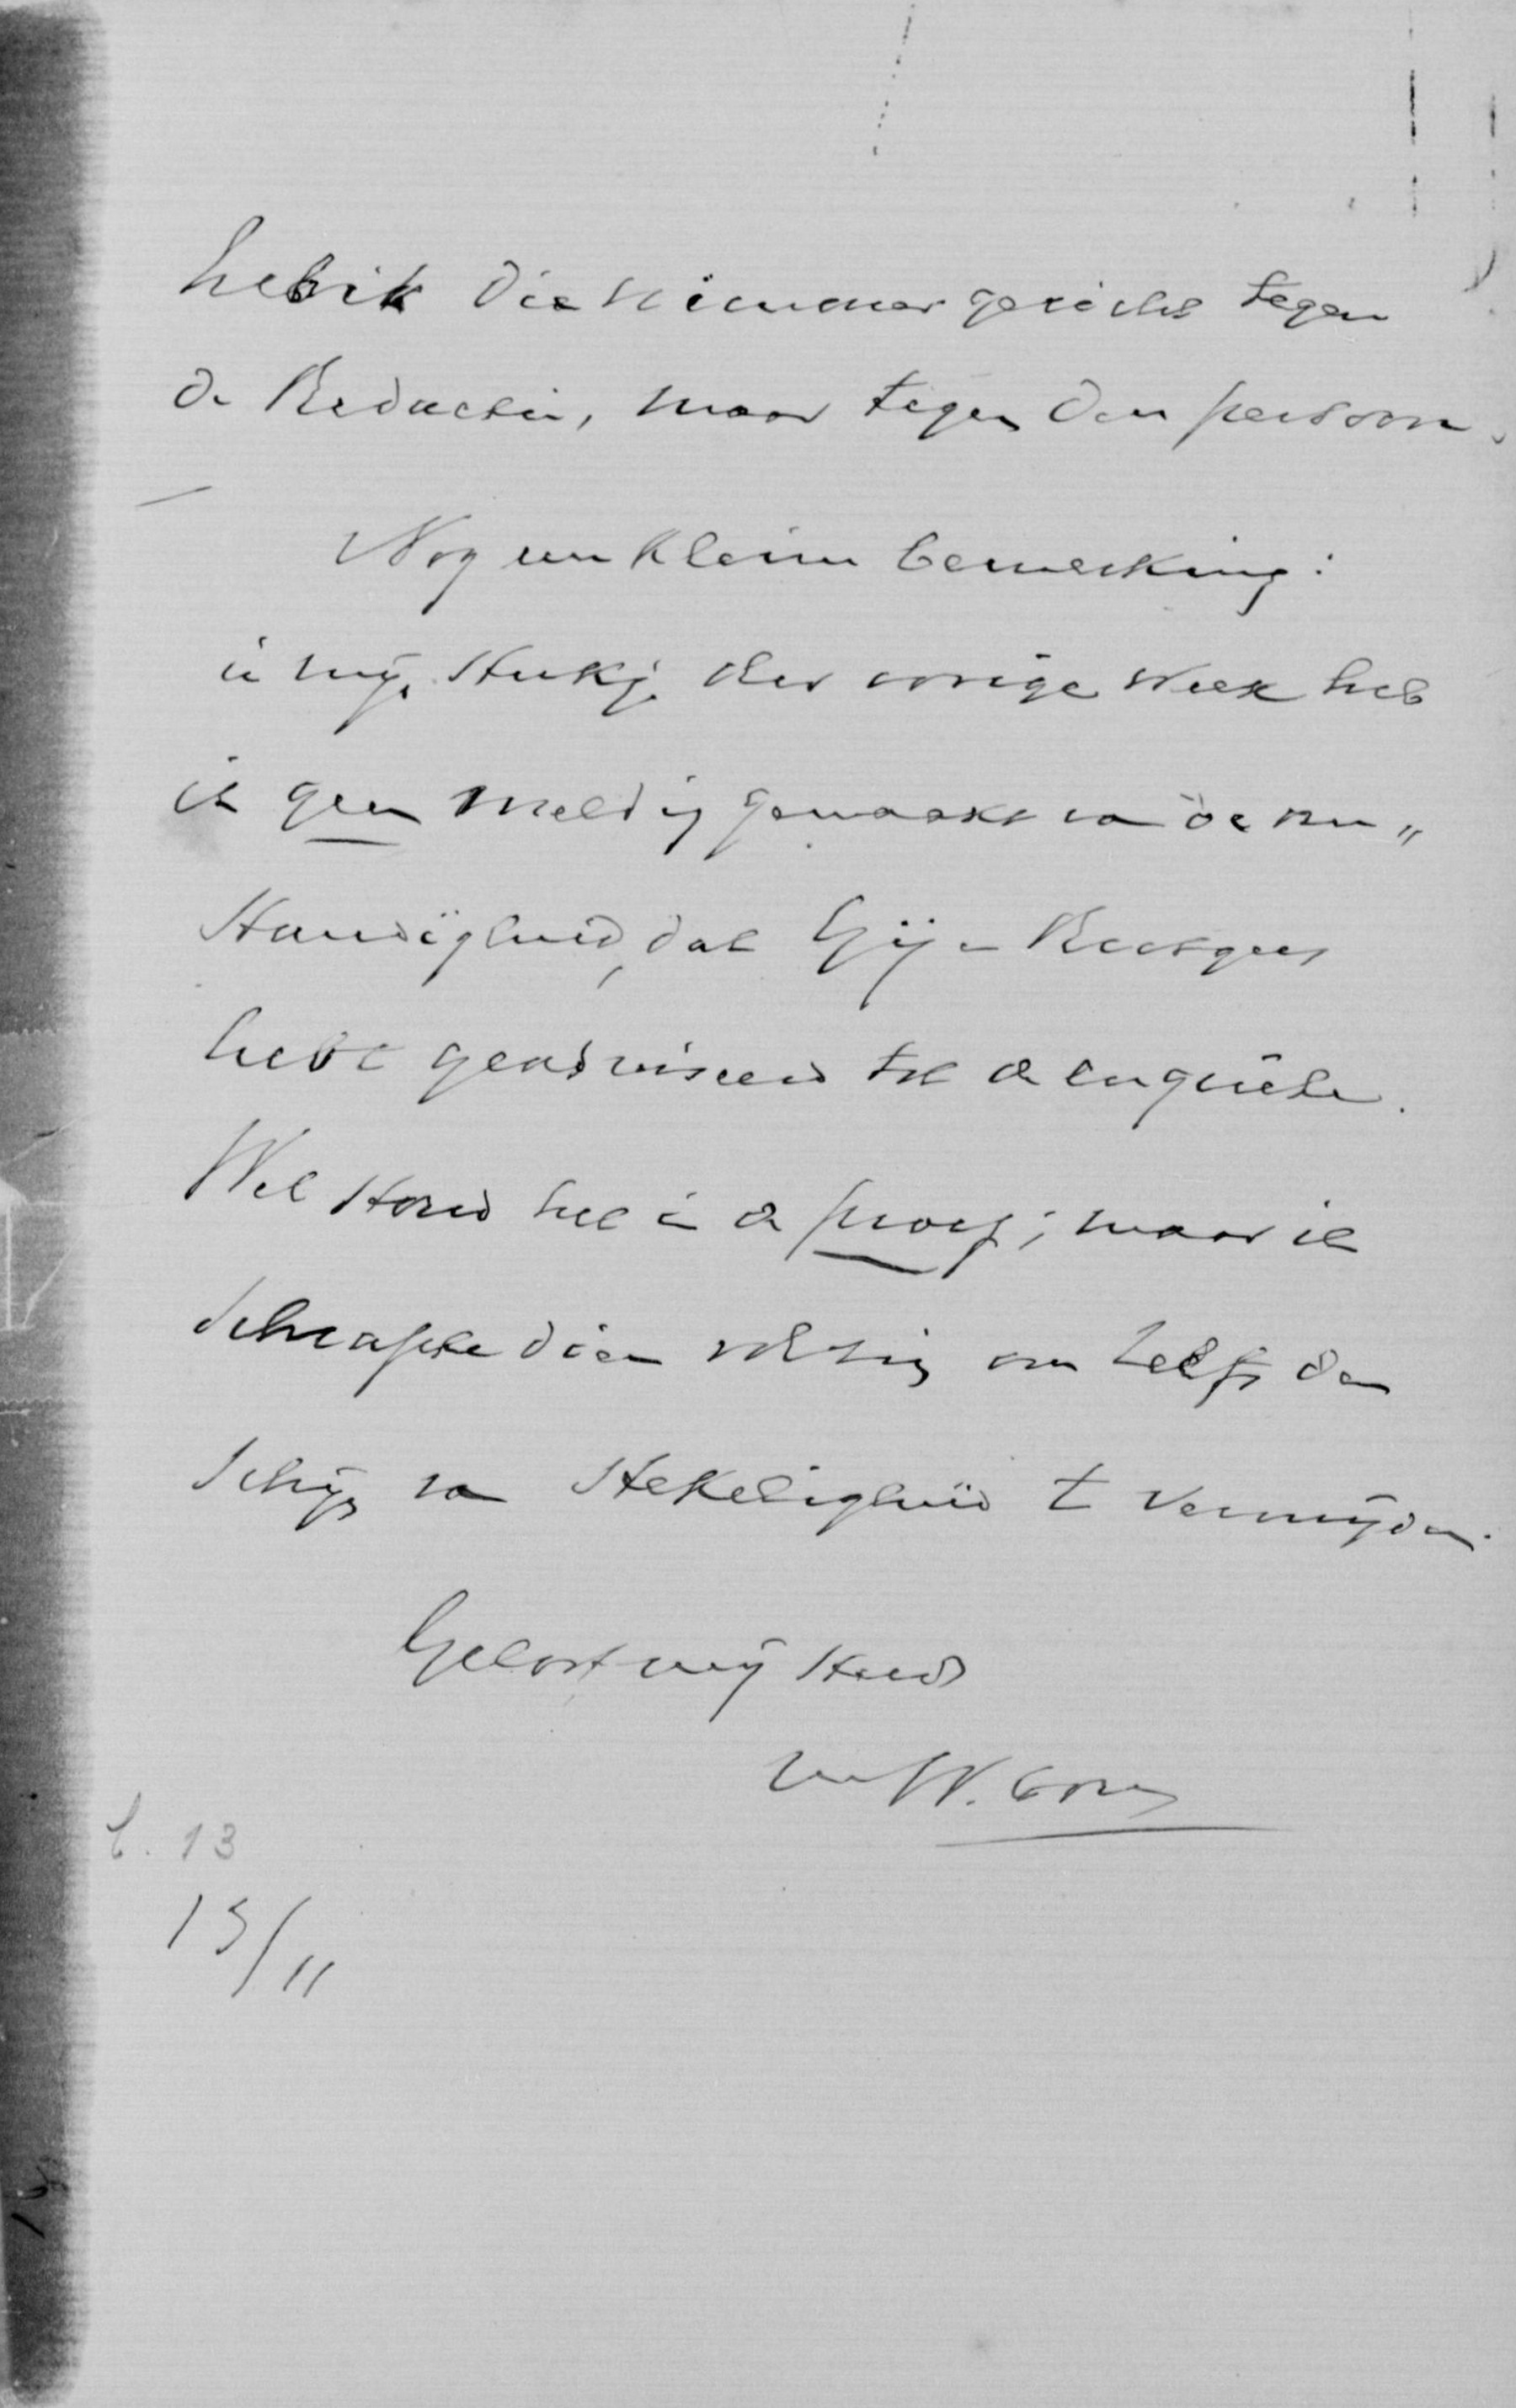 heb ik die nimmer gericht tegen
de Redactie, maar tegen den persoon.
Nog een kleine bemerking:
in mijn stukje der vorige week heb
ik geen melding gemaakt van de om„
standigheid, dat Gij en
hebt geadviseerd tot de enquête.
Wel stond het in de proef; maar ik
schrapte dien volzin om zelfs den
schijn van stekeligheid te vermijden.
Geloof mij steeds
b. 13
15/11